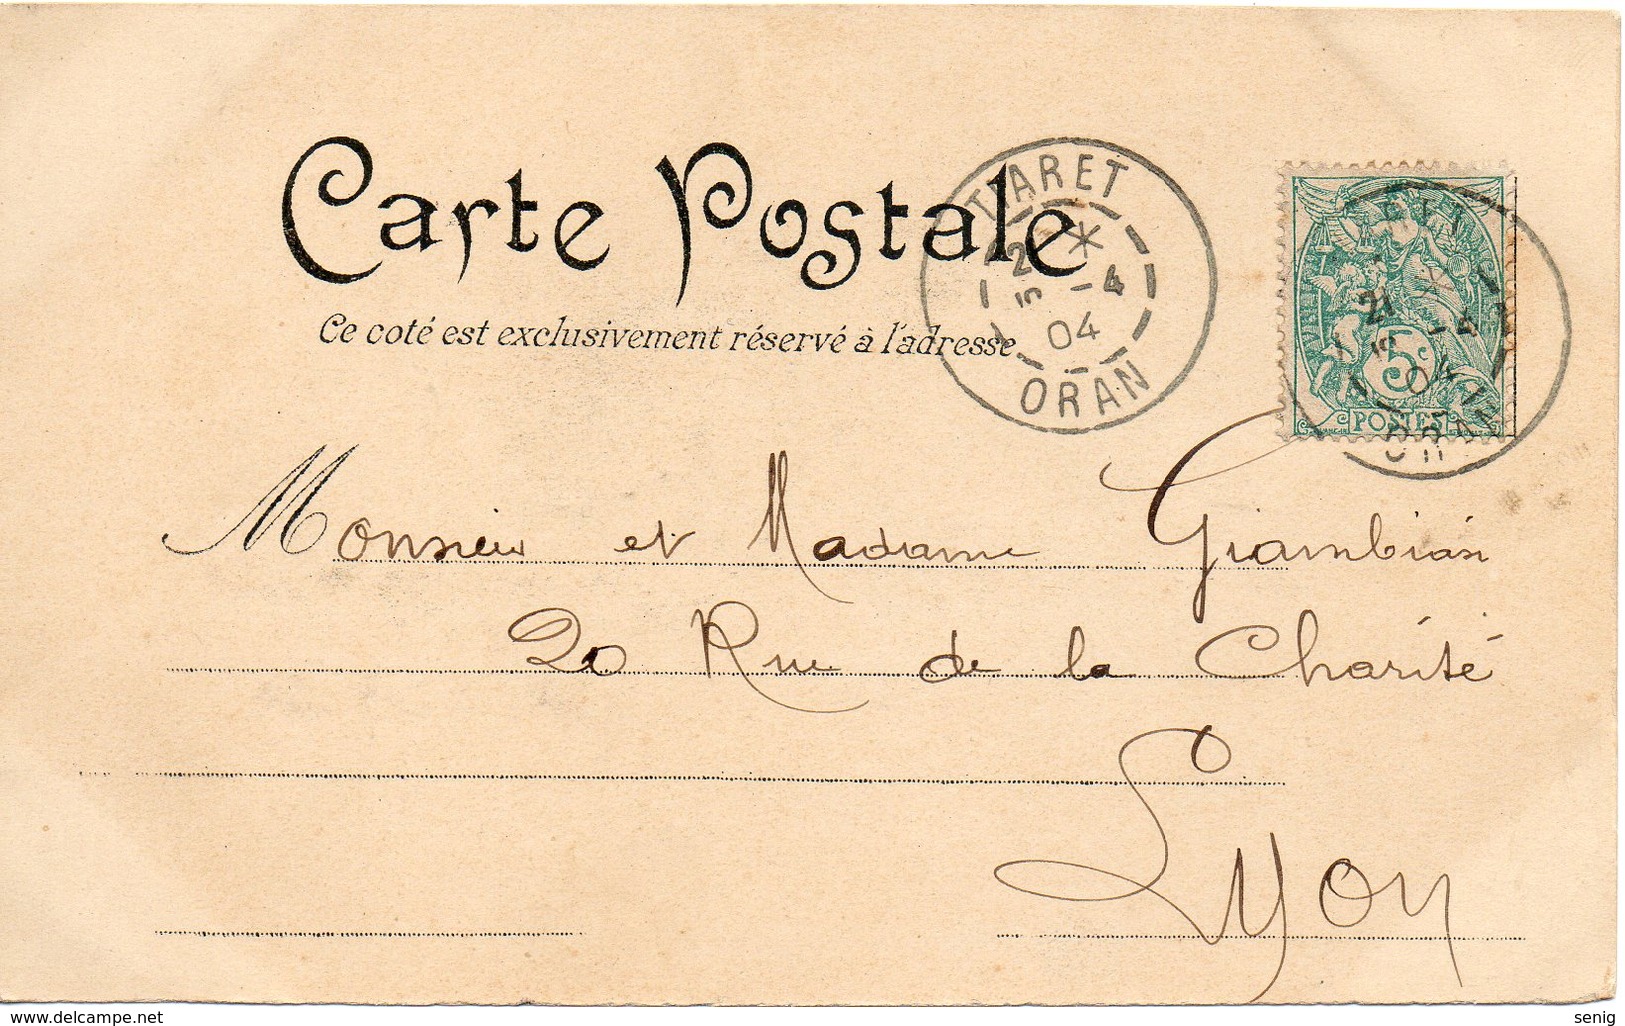 Carte Postale
Ce coté est exclusivement réservé à l'adresse
TIARET
*
-4
04
ORAN
21
04
5c
POSTES
Monsieur et Madame Giambiasi
20 Rue de la Charité
Lyon
www.delcampe.net
senig